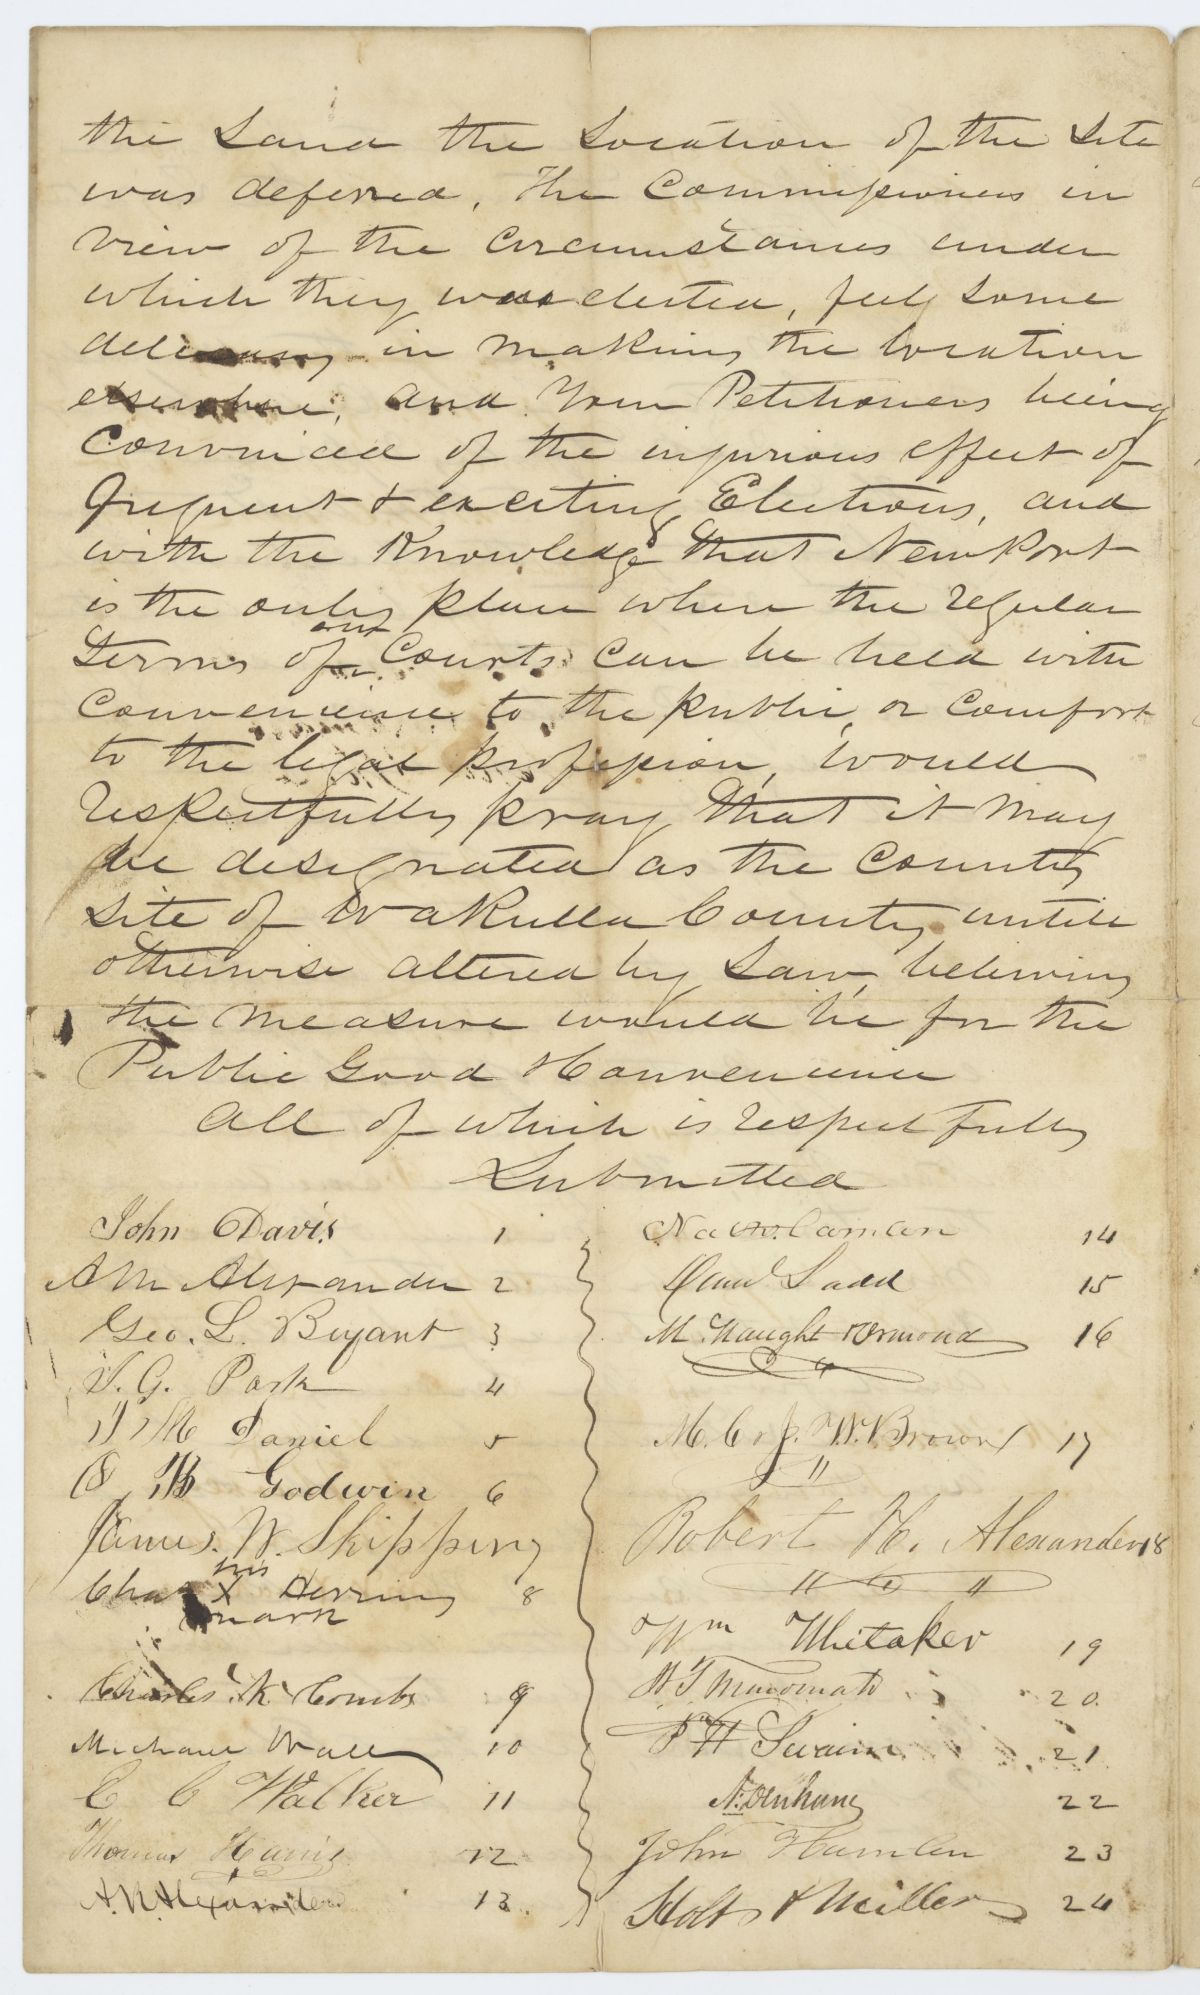 the Land the Location of the Site
was deferred, The Commissioners in
view of the circumstances under
which they was elected, feel some
delicasy in making the location
elsewhere, and Your Petitioners being
Convinced of the injurious effect of
frequent & exciting Elections, and
with the Knowledge that NewPort
is the only place where the regular
Terms of our Courts can be held with
convenience to the public, or comfort
to the legal profession, would
respectfully pray that it may
be designated as the County
site of Wakulla County untill
otherwise altered by Law, believing
the measure would be for the
Public Good & Convenience
All of which is respectfully
Submitted
John Davis 1
A M Alexander 2
Geo. L. Bryant 3
G. Park 4
M Daniel 5
Godwin 6
James. W. Skipping
Chas his X mark Herring 8
Charles K Combs 9
Michael Wall 10
C C Walker 11
Thomas 12
A. N. Alexander 13
14
Danl Ladd 15
McNaught & Ormond 16
M. C & J. W. Brown 17
Robert H. Alexander 18
Wm Whitaker 19
20
H Swaim 21
N. Denham 22
John Hamlin 23
Holt & Miller 24